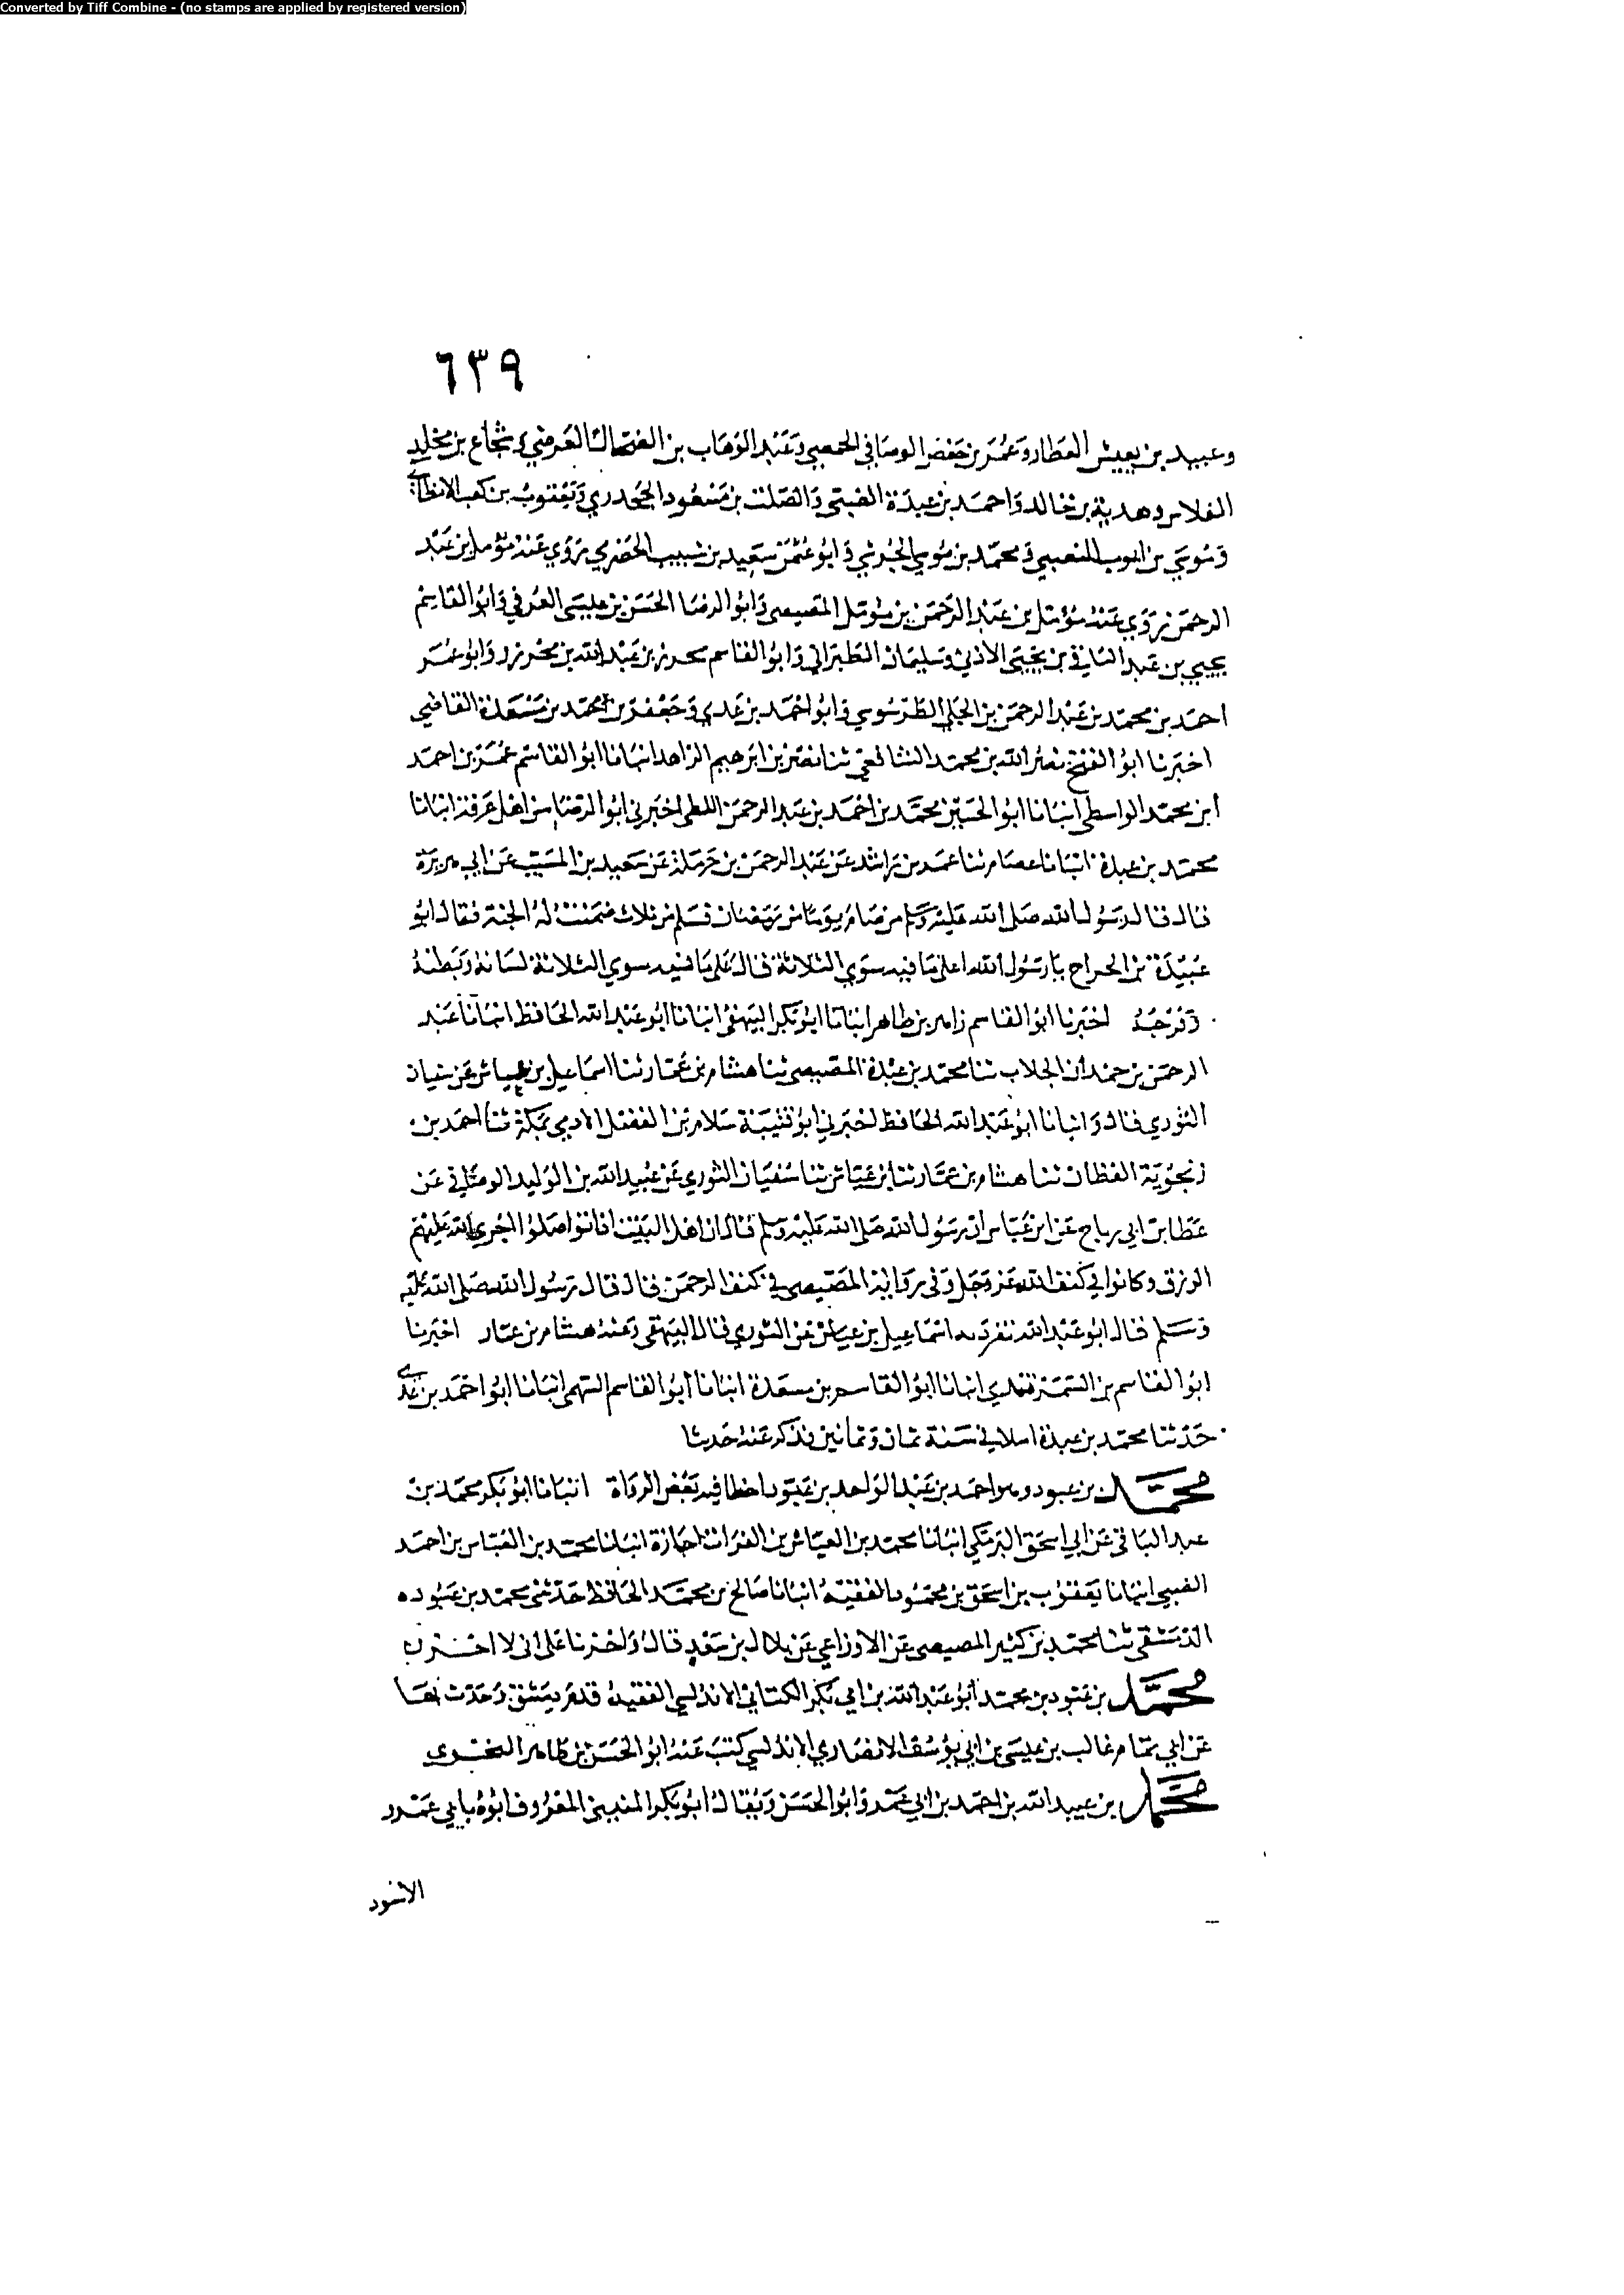 Converted by Tiff Combine - (no stamps are applied by registered version)
٦٣٩
وعبيد بن يعيش العطار وعمر بن حفص الوصافي الحمصي وعبد الوهاب بن الضحاك العرضي وشجاع بن مخلد
الفلاس وهدبة بن خالد واحمد بن عبدة الضبي والصلت بن مسعود الجحدري ويعقوب بن كعب الانطاكي
وموسى بن ايوب النصيبي ومحمد بن موسى الجرشي وابو عثمن سعيد بن شبيب الحضرمي روى عنه مؤمل بن عبد
الرحمن روى عنه مؤمل بن عبد الرحمن بن مؤمل المصيصي وابو الرضا الحسن بن عيسى العرفي وابو القاسم
يحيى بن عبد الباقي بن يحيى الاذني وسليمان الطبراني وابو القاسم محرز بن عبد الله بن محرز وابو عمر
احمد بن محمد بن عبد الرحمن بن الجلي الطرسوسي وابو احمد بن عدي وجعفر بن محمد بن مسعدة القاضي
اخبرنا ابو الفتح نصر الله بن محمد الشافعي ثنا نصر بن ابرهيم الزاهد انبانا ابو القاسم عمر بن احمد
ابن محمد الواسطي انبانا ابو الحسين محمد بن احمد بن عبد الرحمن الملطي اخبرني ابو الرضا من اهل عرفة انبانا
محمد بن عبدة انبانا عصام ثنا عمد بن راشد عن عبد الرحمن بن حرملة عن سعيد بن المسيب عن ابي هريرة
قال قال رسول الله صلى الله عليه وسلم من صام يوما من رمضان فسلم من ثلاث ضمنت له الجنة فقال ابو
عبيدة بن الجراح يا رسول الله اعلى ما فيه سوى الثلاثة قال على ما فيه سوى الثلاثة لسانه وبطنه
وفرجه اخبرنا ابو القاسم زاهر بن طاهر انبانا ابو بكر البيهقي انبانا ابو عبد الله الحافظ انبانا عبد
الرحمن بن حمدان الجلاب ثنا محمد بن عبدة المصيصي ثنا هشام بن عمار ثنا اسماعيل بن عياش عن سفيان
الثوري قال وانبانا ابو عبد الله الحافظ اخبرني ابو قتيبة سلام بن الفضل الادمي بمكة ثنا احمد بن
زنجوية القطان ثنا هشام بن عمار ثنا ابن عياش ثنا سفيان الثوري عن عبيد الله بن الوليد الوصافي عن
عطا بن ابي رباح عن ابن عباس ان رسول الله صلى الله عليه وسلم قال ان اهل البيت اذا تواصلوا اجرى الله عليهم
الرزق وكانوا في كنف الله عز وجل وفي رواية المصيصي في كنف الرحمن قال قال رسول الله صلى الله عليه
وسلم قال ابو عبد الله تفرد به اسماعيل بن عياش عن الثوري قال البيهقي وعنه هشام بن عمار اخبرنا
ابو القاسم بن السمرقندي انبانا ابو القاسم بن مسعدة انبانا ابو القاسم السهمي انبانا ابو احمد بن عدي
حدثنا محمد بن عبدة املا في سنة ثمان وثمانين فذكر عنه حديثا
محمد بن عبود وهو احمد بن عبد الواحد بن عبود اخطا فيه بعض الرواة انبانا ابو بكر محمد بن
عبد الباقي عن ابي اسحق البرمكي انبانا محمد بن العباس بن الفرات اجازة انبانا محمد بن العباس بن احمد
الضبي انبانا يعقوب بن اسحق بن محمود الفقيه انبانا صالح بن محمد الحافظ حدثني محمد بن عبود
الدمشقي ثنا محمد بن كثير المصيصي عن الاوزاعي عن بلال بن سعد قال
محمد بن عبود بن محمد ابو عبد الله بن ابي بكر الكتاني الاندلسي الفقيه قدم دمشق وحدث بها
عن ابي تمام غالب بن عيسى بن ابي يوسف الانصاري الاندلسي كتب عنه ابو الحسن بن طاهر النحوي
محمد بن عبيد الله بن احمد بن ابي عمرو ابو الحسن ويقال ابو بكر المنيني المعروف ابوه بابي عمرو
الاسود